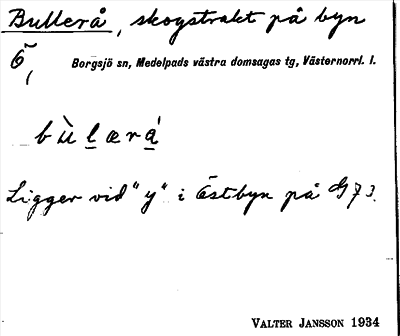 Bullerå, skogstrakt på byn
Ö, Borgsjö sn, Medelpads västra domsagas tg, Västernorrl. l.
bùlærá
Ligger vid "y" i Östbyn på G73.
VALTER JANSSON 1934